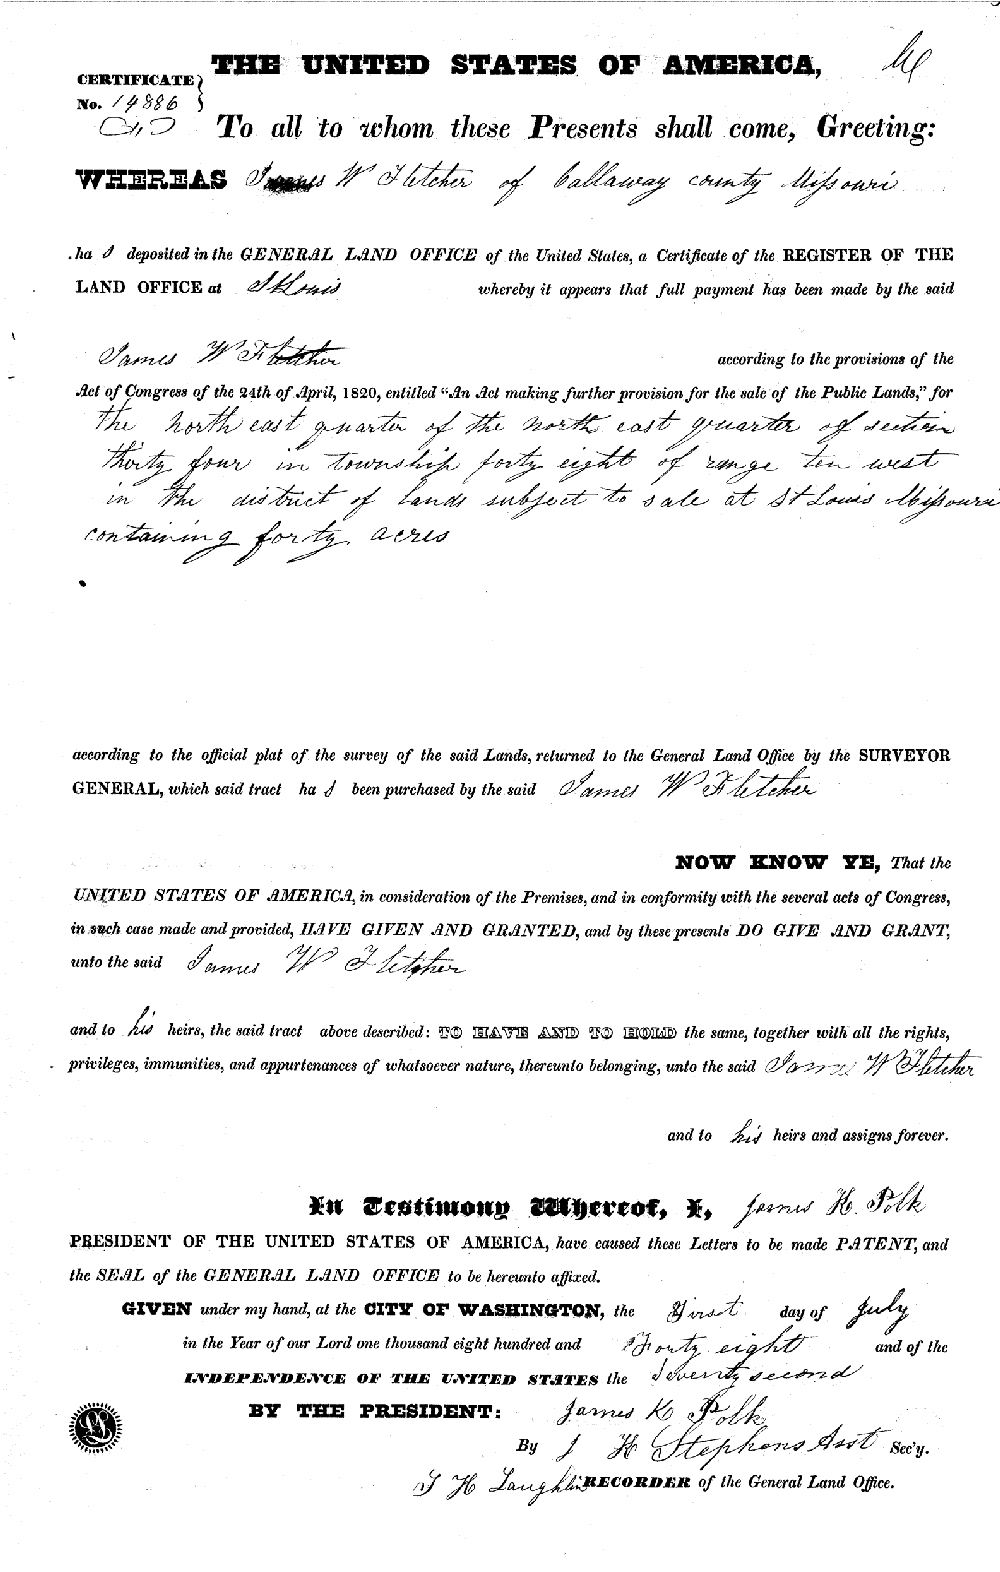 THE UNITED STATES OF AMERICA,
CERTIFICATE
No. 14886
To all to whom these Presents shall come, Greeting:
WHEREAS James W Fletcher of Callaway county Missouri
ha s deposited in the GENERAL LAND OFFICE of the United States, a Certificate of the REGISTER OF THE
LAND OFFICE at St Louis whereby it appears that full payment has been made by the said
James W Fletcher according to the provisions of the
Act of Congress of the 24th of April, 1820, entitled "An Act making further provision for the sale of the Public Lands," for
the north east quarter of the north east quarter of section
thirty four in township forty eight of range ten west
in the district of lands subject to sale at St Louis Missouri
containing forty acres
according to the official plat of the survey of the said Lands, returned to the General Land Office by the SURVEYOR
GENERAL, which said tract ha s been purchased by the said James W Fletcher
NOW KNOW YE, That the
UNITED STATES OF AMERICA, in consideration of the Premises, and in conformity with the several acts of Congress,
in such case made and provided, HAVE GIVEN AND GRANTED, and by these presents DO GIVE AND GRANT,
unto the said James W Fletcher
and to his heirs, the said tract above described: TO HAVE AND TO HOLD the same, together with all the rights,
privileges, immunities, and appurtenances of whatsoever nature, thereunto belonging, unto the said James W Fletcher
and to his heirs and assigns forever.
In Testimony Whereof, I, James K. Polk
PRESIDENT OF THE UNITED STATES OF AMERICA, have caused these Letters to be made PATENT, and
the SEAL of the GENERAL LAND OFFICE to be hereunto affixed.
GIVEN under my hand, at the CITY OF WASHINGTON, the First day of July
in the Year of our Lord one thousand eight hundred and Forty eight and of the
INDEPENDENCE OF THE UNITED STATES the Seventy second
BY THE PRESIDENT: James K Polk
By J K Stephens Asst Sec'y.
S H Laughlin RECORDER of the General Land Office.